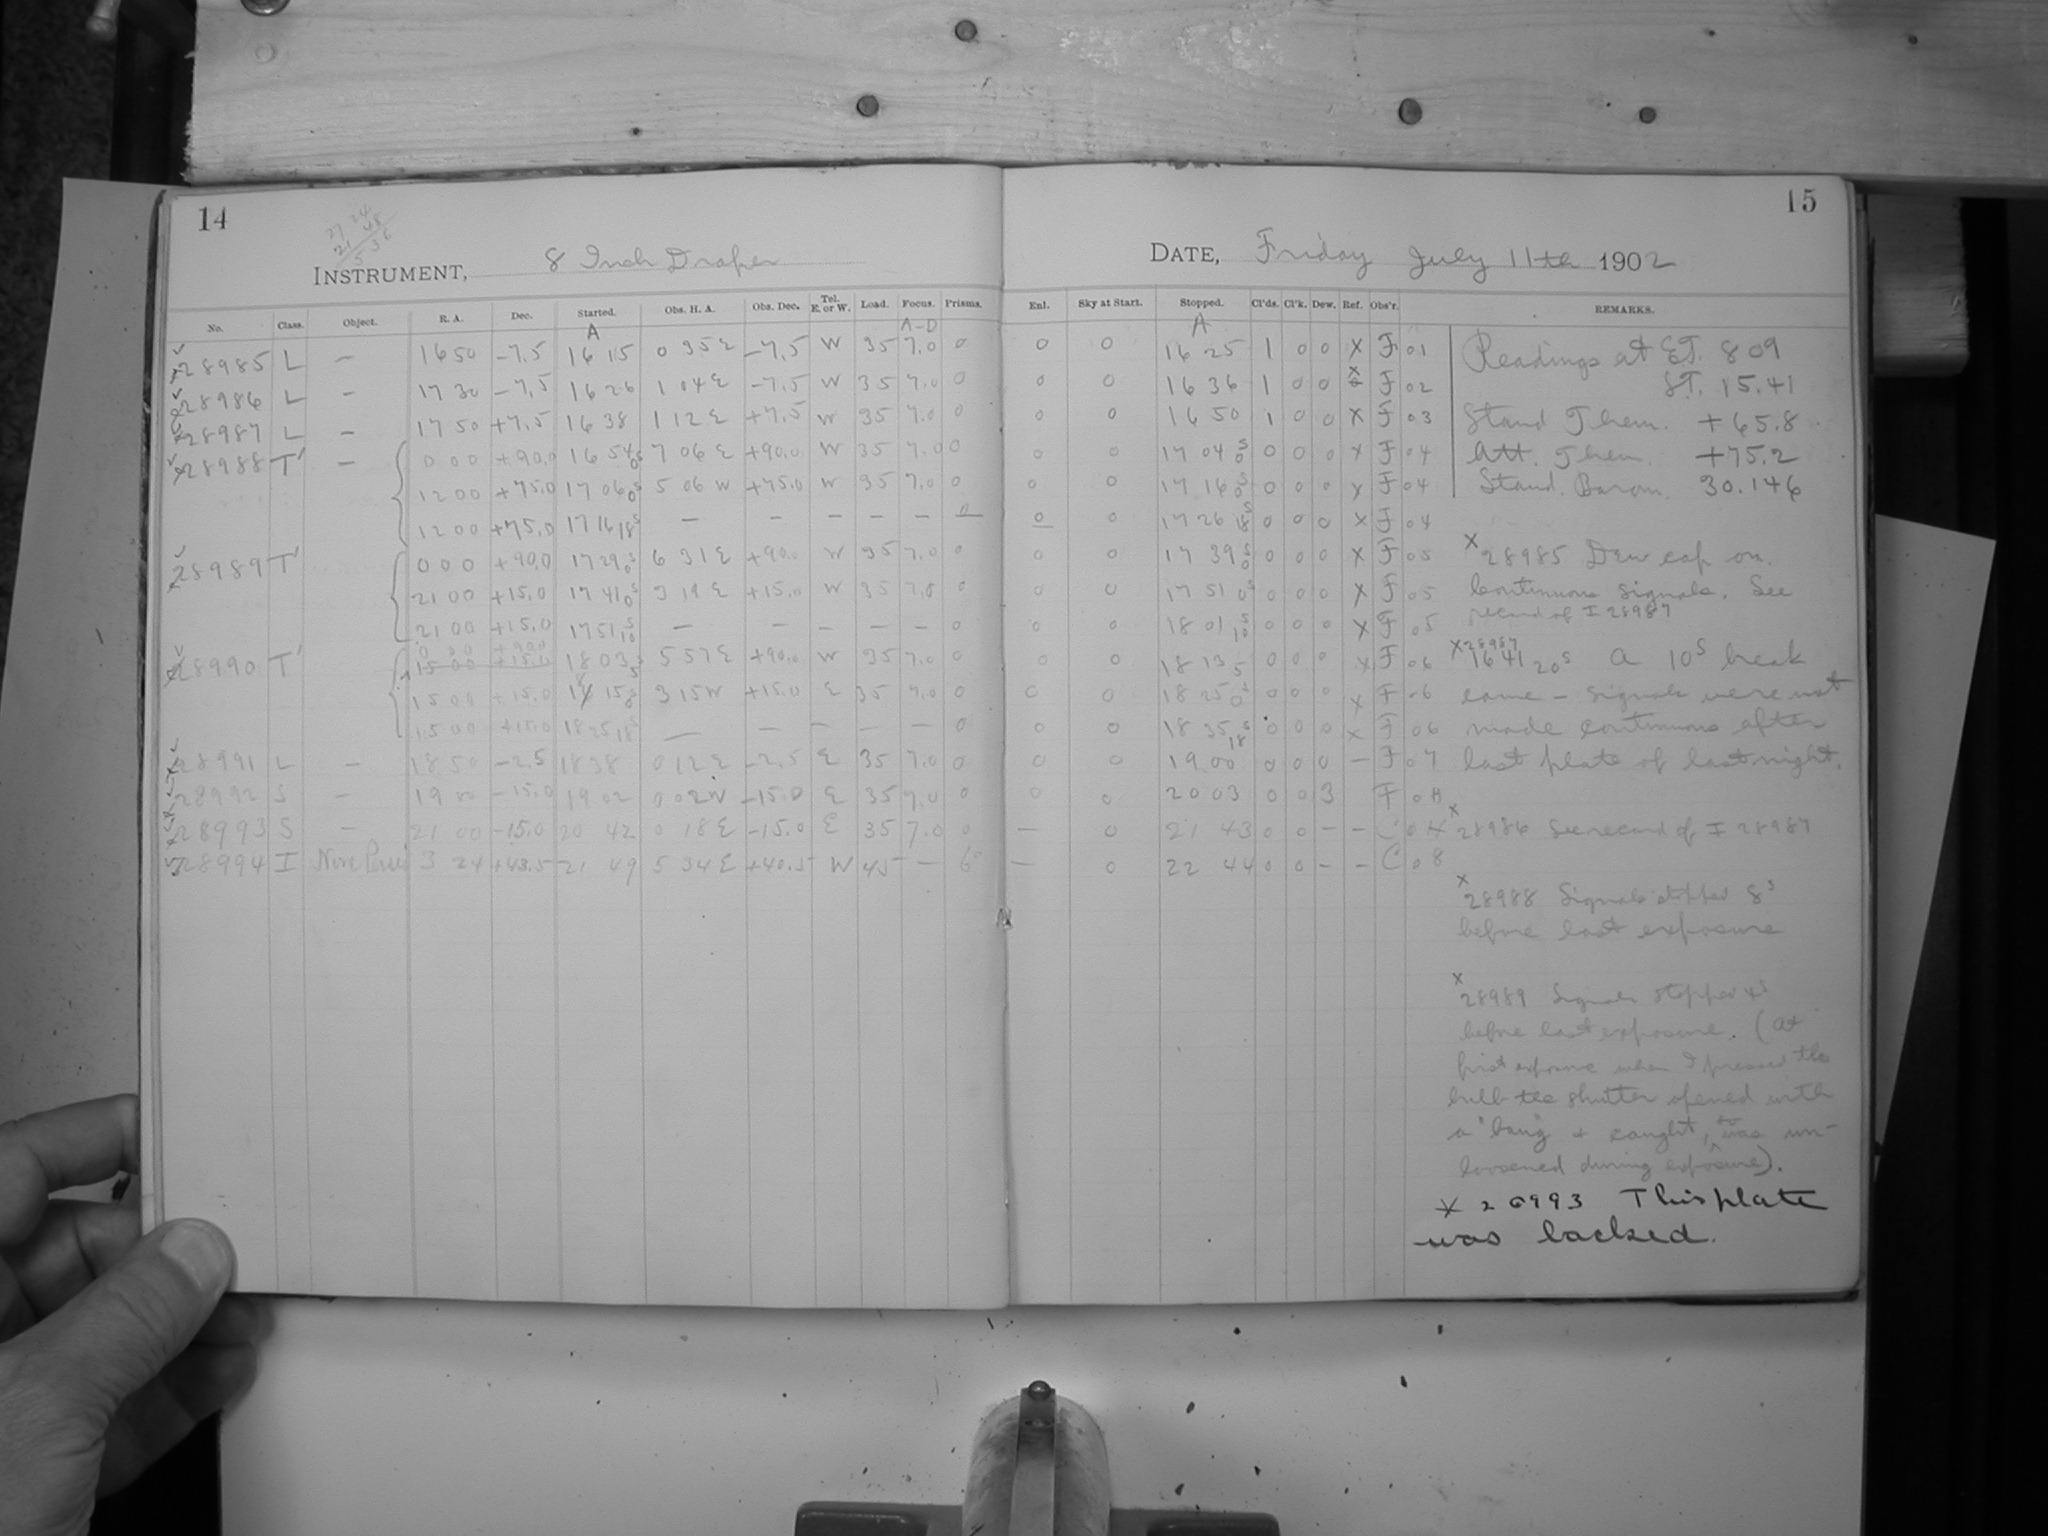 14
27 24
21 48
5 36
INSTRUMENT, 8 Inch Draper
No. Class. Object. R. A. Dec. Started. Obs. H. A. Obs. Dec. Tel. E. or W. Load. Focus. Prisms.
A A-D
28985 L — 16 50 -7.5 16 15 0 35 E -7.5 W 35 7.0 0
28986 L — 17 30 -7.5 16 26 1 04 E -7.5 W 35 7.0 0
28987 L — 17 50 +7.5 16 38 1 12 E +7.5 W 35 7.0 0
28988 T' — 0 00 +90.0 16 54 0s 7 06 E +90.0 W 35 7.0 0
12 00 +75.0 17 06 0s 5 06 W +75.0 W 35 7.0 0
12 00 +75.0 17 16 18s — — — — — 0
28989 T' 0 00 +90.0 17 29 0s 6 31 E +90.0 W 35 7.0 0
21 00 +15.0 17 41 0s 3 19 E +15.0 W 35 7.0 0
21 00 +15.0 17 51 10s — — — — — 0
0 00 +90.0
28990 T' 15 00 +15.0 18 03 5s 5 57 E +90.0 W 35 7.0 0
15 00 +15.0 18 15 3 15 W +15.0 E 35 7.0 0
15 00 +15.0 18 25 18s — — — — — 0
28991 L — 18 50 -2.5 18 38 0 12 E -2.5 E 35 7.0 0
28992 S — 19 00 -15.0 19 02 0 02 W -15.0 E 35 7.0 0
28993 S — 21 00 -15.0 20 42 0 18 E -15.0 E 35 7.0 0
28994 I Nova Persei 3 24 +43.5 21 49 5 34 E +40.5 W 45 — 6
15
DATE, Friday July 11th 1902
Enl. Sky at Start. Stopped. Cl'ds. Cl'k. Dew. Ref. Obs'r. REMARKS.
A
0 0 16 25 1 0 0 X F 01
0 0 16 36 1 0 0 X F 02
0 0 16 50 1 0 0 X F 03
0 0 17 04 0s 0 0 0 X F 04
0 0 17 16 0s 0 0 0 X F 04
0 0 17 26 18s 0 0 0 X F 04
0 0 17 39 0s 0 0 0 X F 05
0 0 17 51 0s 0 0 0 X F 05
0 0 18 01 10s 0 0 0 X F 05
0 0 18 13 5 0 0 0 X F 06
0 0 18 25 0s 0 0 0 X F 06
0 0 18 35 18s 0 0 0 X F 06
0 0 19 00 0 0 0 — F 07
0 0 20 03 0 0 3 F
— 0 21 43 0 0 — — C
— 0 22 44 0 0 — — C 08
Readings at E.T. 8 09
S.T. 15.41
Stand Them. +65.8
Att. Them. +75.2
Stand. Barom. 30.146
X 28985 Dew cap on.
Continuous signals. See
record of I 28987
X 28987
16 41 20s A 10s break
came — signals were not
made continuous after
last plate of last night.
X 28986 See record of I 28987
X 28988 Signals stopped 8s
before last exposure
X 28989 Signals stopped 4s
before last exposure. (At
first exposure when I pressed the
bulb the shutter opened with
a "bang" & caught, was un-
loosened during exposure).
X 28993 This plate
was backed.